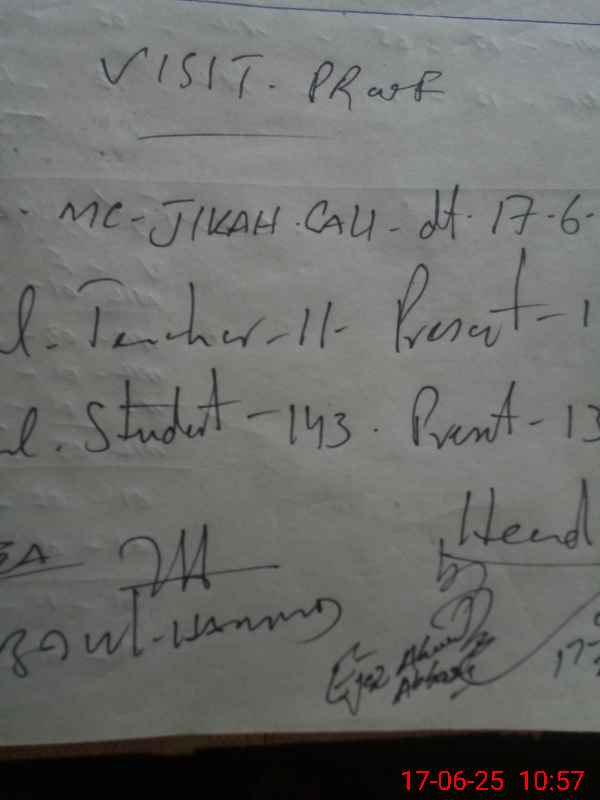 VISIT. PRooF
MC-JIKAH.CALI- dt. 17-6-
l. Teacher-11- Present-1
l. Student-143. Present-13
Head
Ejaz Ahmed
Abbasi
17-
17-06-25 10:57